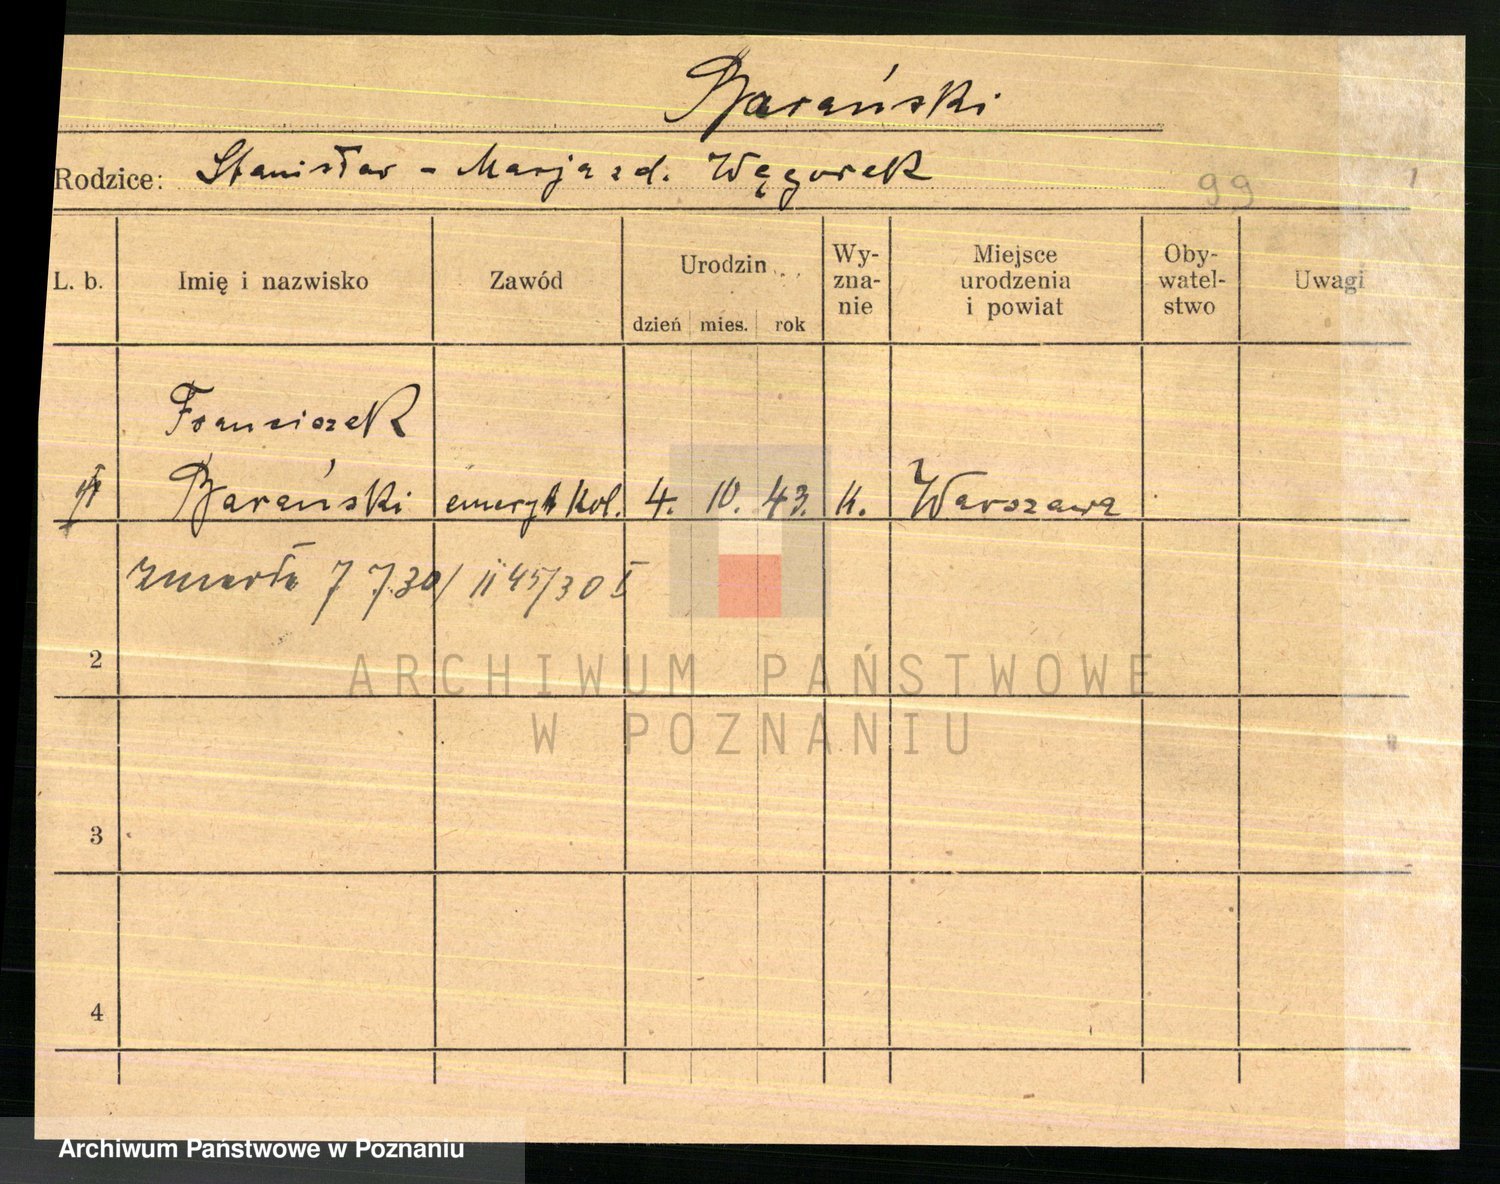 Barański
Rodzice: Stanisław - Marja zd. Węgorek
99
L. b. Imię i nazwisko Zawód Urodzin Wy-zna-nie Miejsce urodzenia i powiat Oby-watel-stwo Uwagi
dzień mies. rok
Franciszek
Barański emeryt kol. 4. 10. 43. k. Warszawa
zmarła 7 7.30/ II 45/30 I
2
ARCHIWUM PAŃSTWOWE
W POZNANIU
3
4
Archiwum Państwowe w Poznaniu